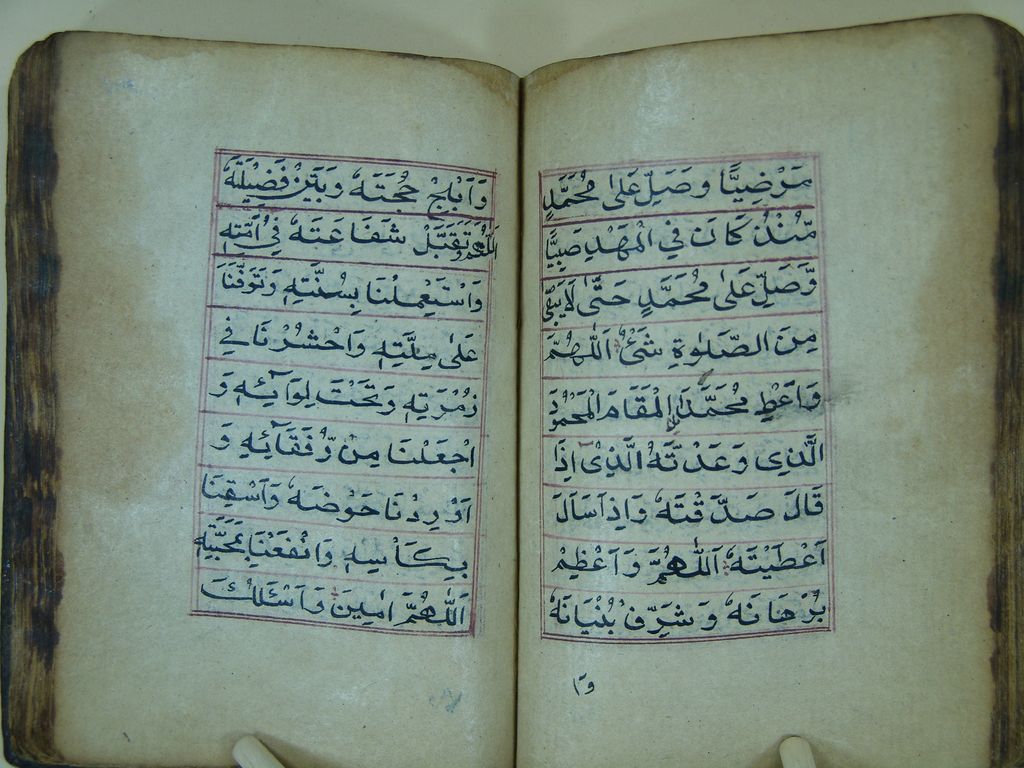 مَرْضِيًّا وَصَلِّ عَلٰى مُحَمَّدٍ
مُّنْذُ كَانَ فِي الْمَهْدِ صَبِيًّا
وَّصَلِّ عَلٰى مُحَمَّدٍ حَتّٰى لَا يَبْقٰى
مِنَ الصَّلٰوةِ شَئٌ اَللّٰهُمَّ
وَاَعْطِ مُحَمَّدَاۨ الْمَقَامَ الْمَحْمُوْدَ
الَّذِى وَعَدْتَّهُ الَّذِىْ اِذَا
قَالَ صَدَّقْتَهٗ وَاِذَا سَاَلَ
اَعْطَيْتَهٗ اَللّٰهُمَّ وَاَعْظِمْ
بُرْهَانَهٗ وَشَرِّفْ بُنْيَانَهٗ
وَا
وَاَبْلِجْ حُجَّتَهٗ وَبَيِّنْ فَضِيْلَتَهٗ
اَللّٰهُمَّ وَتَقَبَّلْ شَفَاعَتَهٗ فِيْ اُمَّتِهٖ
وَاسْتَعْمِلْنَا بِسُنَّتِهٖ وَتَوَفَّنَا
عَلٰى مِلَّتِهٖ وَاحْشُرْنَا فِي
زُمْرَتِهٖ وَتَحْتَ لِوَآئِهٖ وَ
اجْعَلْنَا مِنْ رُّفَقَآئِهٖ وَ
اَوْرِدْنَا حَوْضَهٗ وَاَسْقِنَا
بِكَاْسِهٖ وَانْفَعْنَا بِمَحَبَّتِهٖ
اَللّٰهُمَّ اٰمِيْنَ وَاَسْئَلُكَ